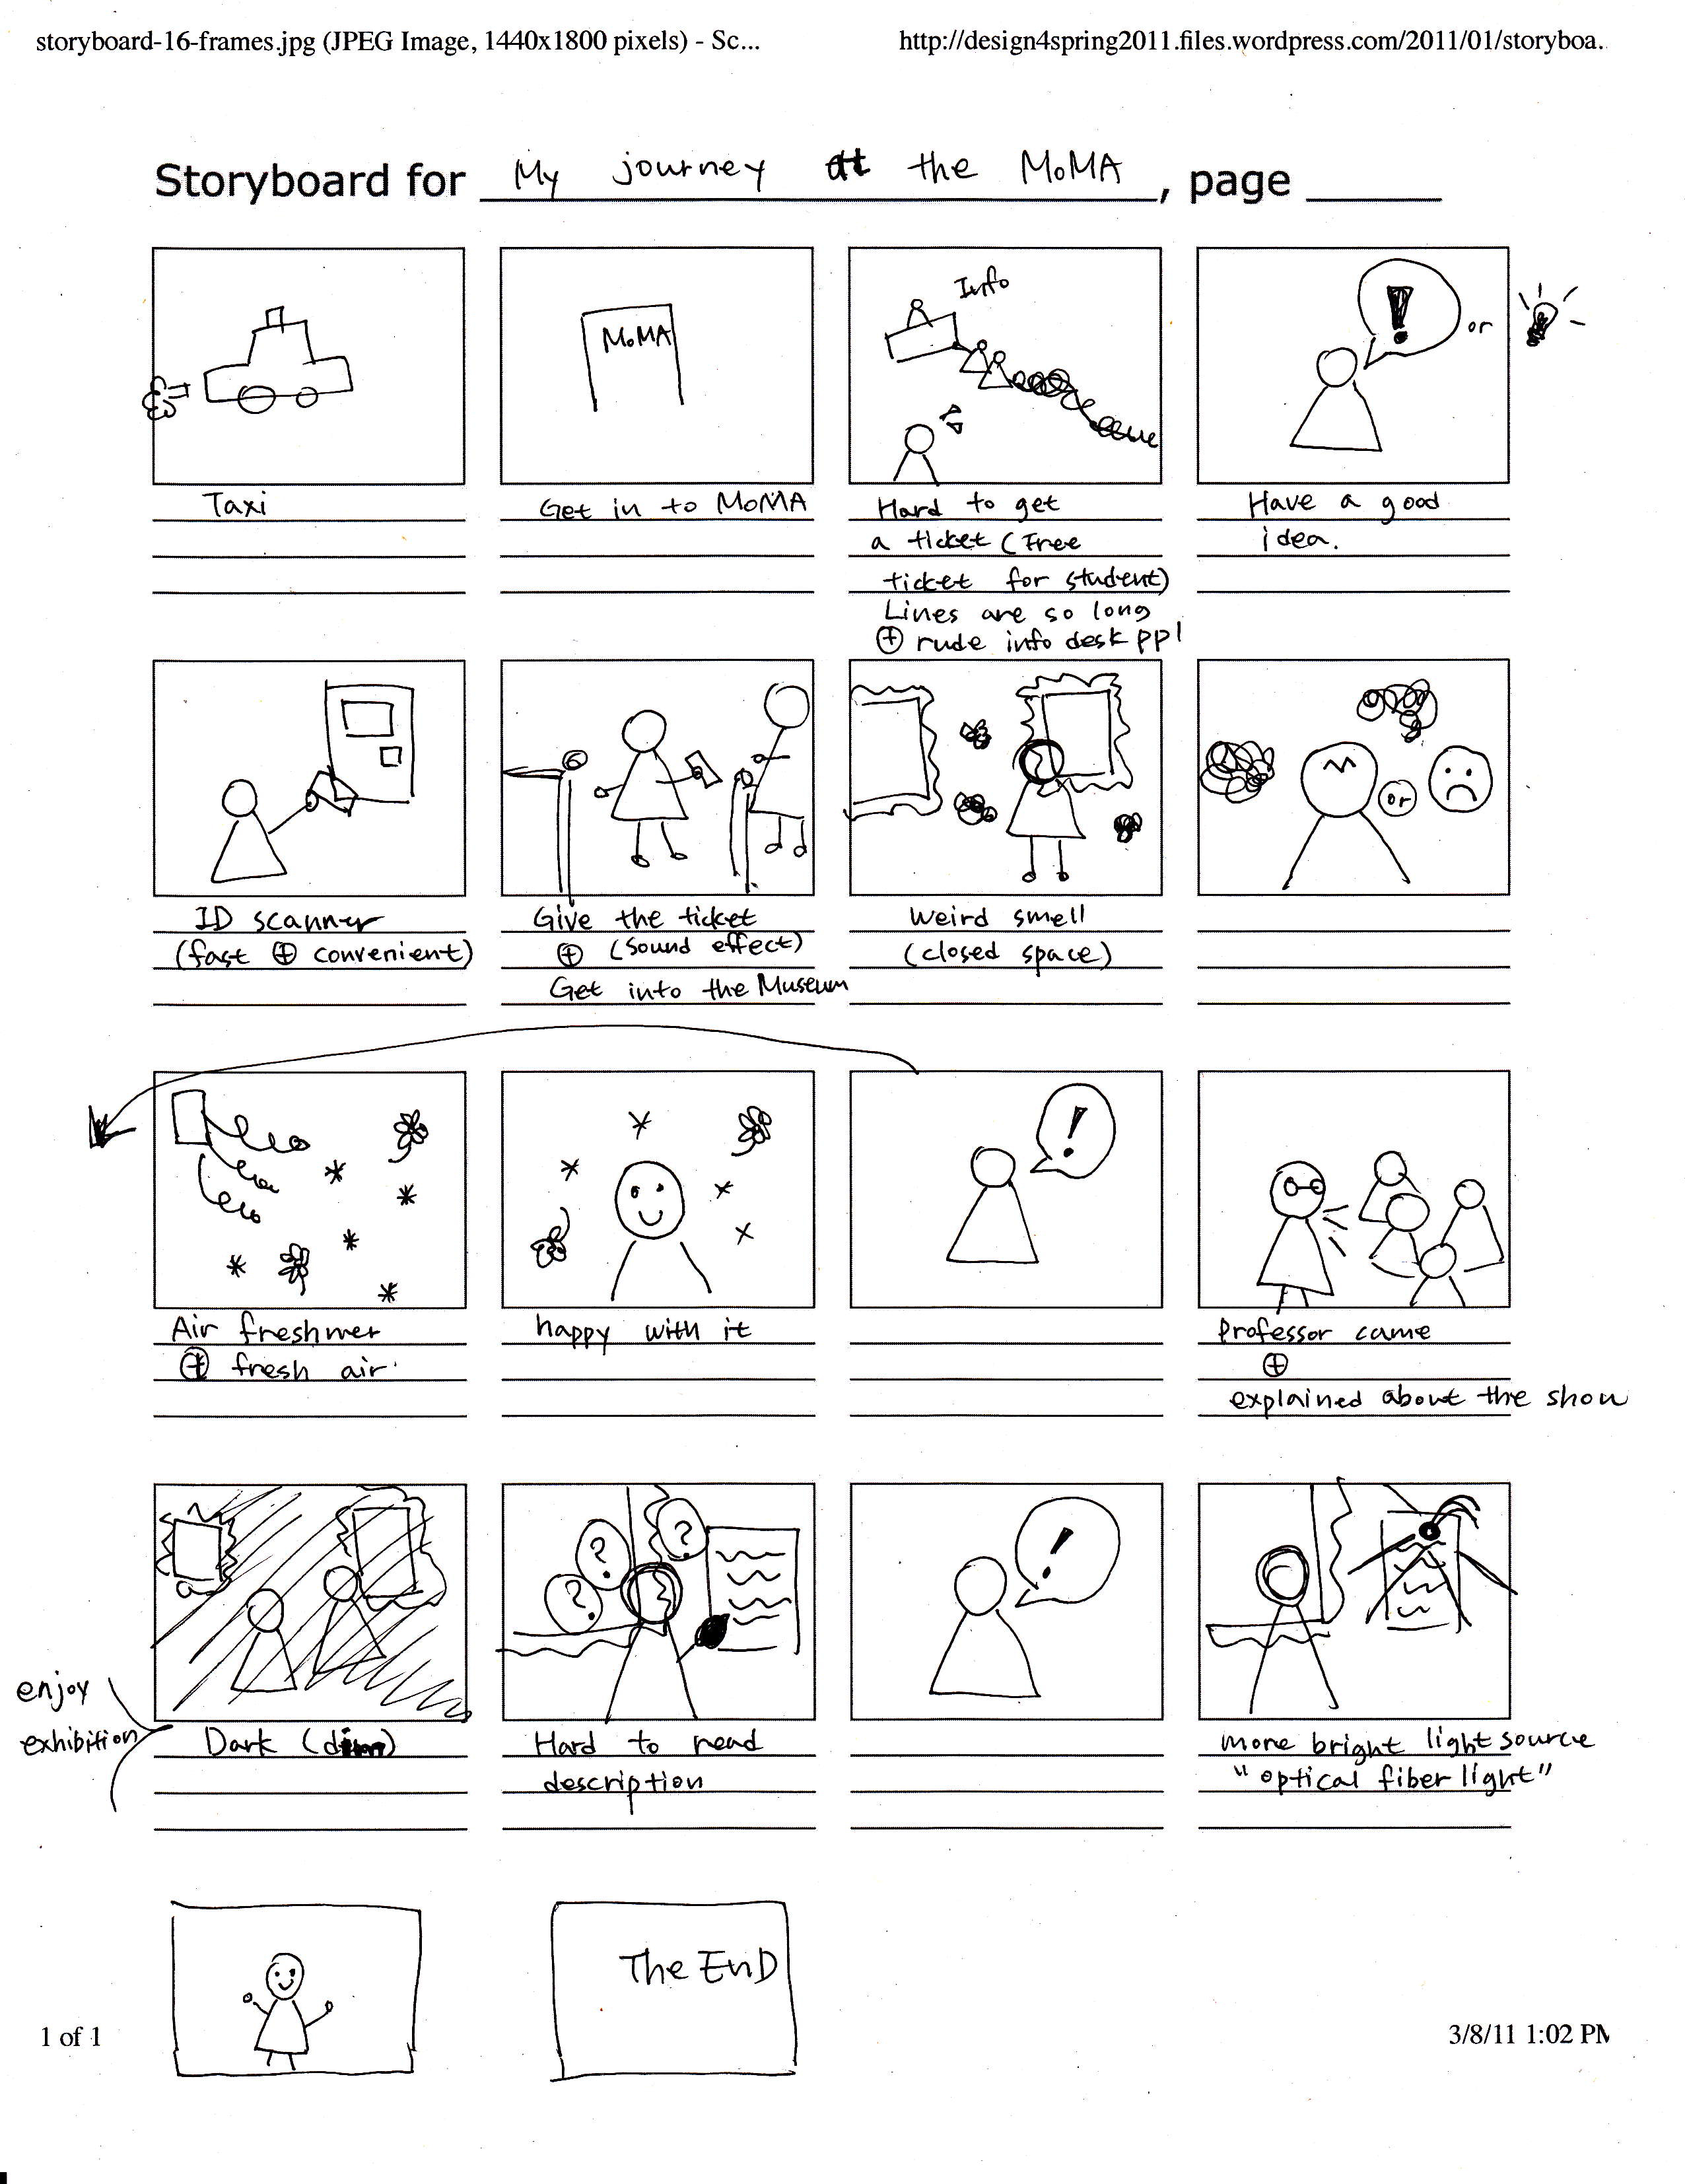 storyboard-16-frames.jpg (JPEG Image, 1440x1800 pixels) - Sc...
http://design4spring2011.files.wordpress.com/2011/01/storyboa.
Storyboard for My journey at the MoMA, page
MoMA
Info
!
or
Taxi
Get in to MoMA
Hard to get
a ticket (Free
ticket for student)
Lines are so long
⊕ rude info desk ppl
Have a good
idea.
or
ID scanner
(fast ⊕ convenient)
Give the ticket
⊕ (sound effect)
Get into the Museum
Weird smell
(closed space)
!
Air freshmer
⊕ fresh air
happy with it
Professor came
⊕
explained about the show
? ? ?
!
enjoy
exhibition
Dark (dim)
Hard to read
description
more bright light source
"optical fiber light"
The EnD
1 of 1
3/8/11 1:02 PM